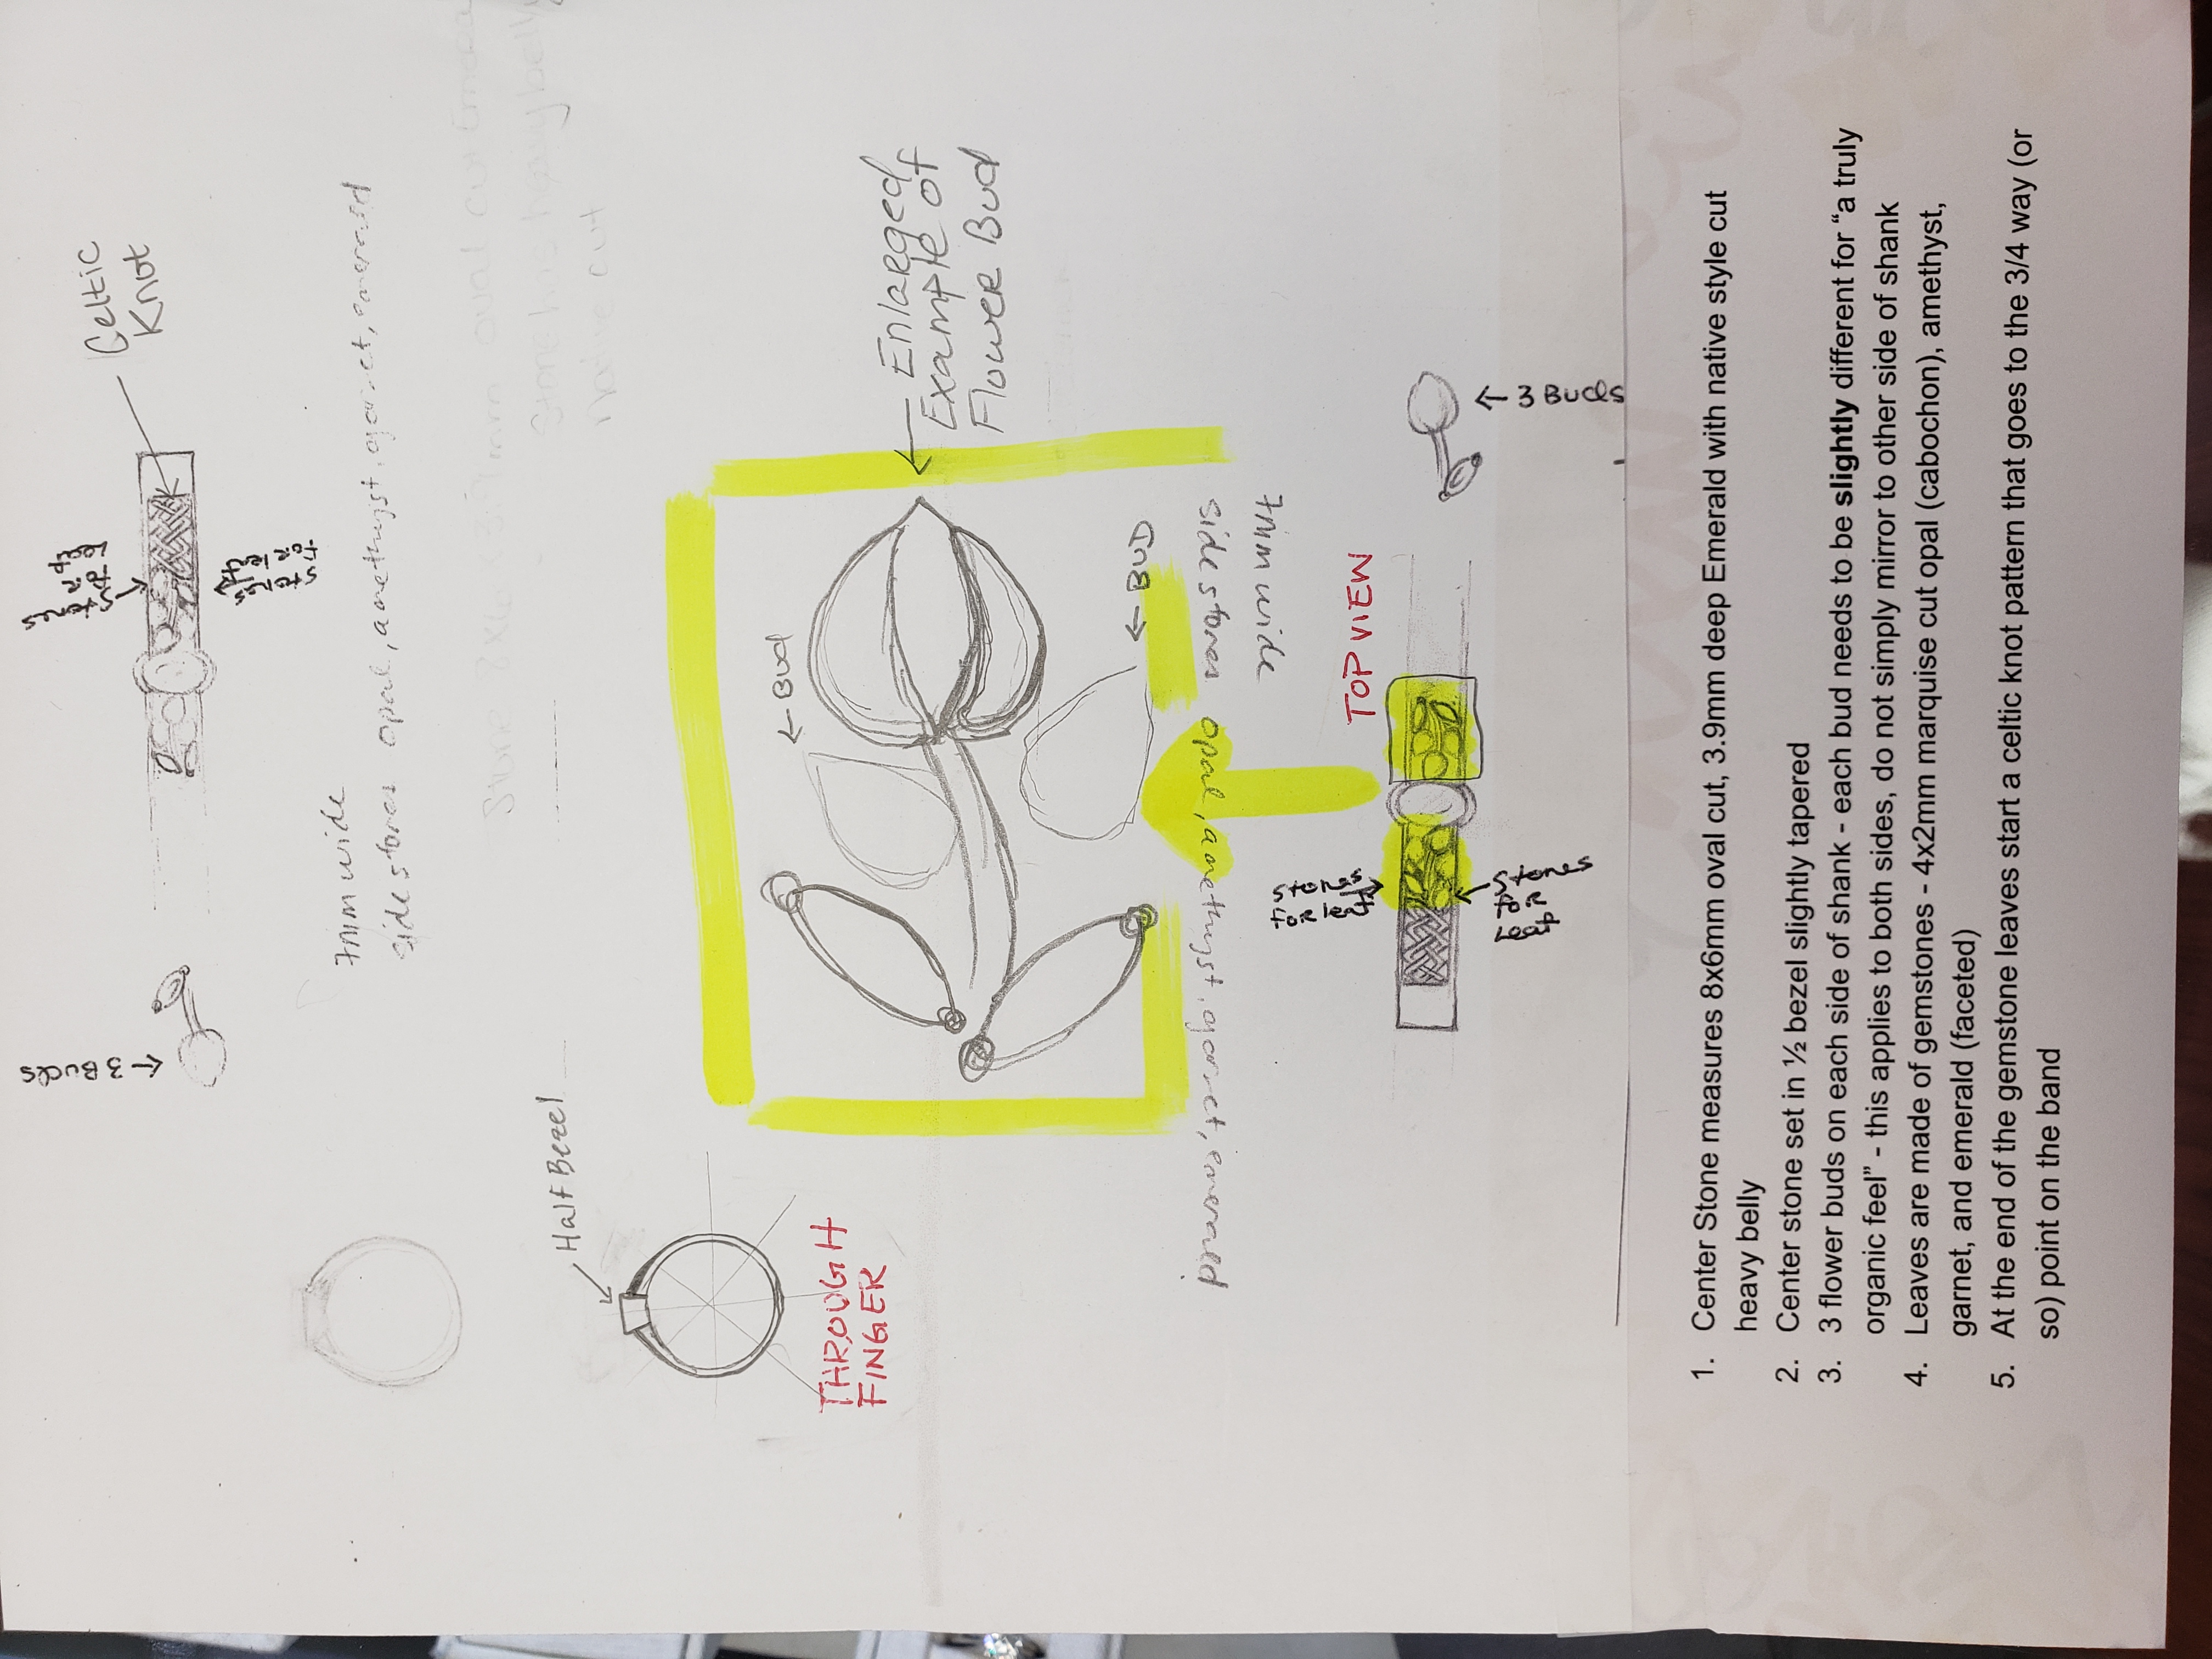 ← 3 Buds
Stones
FOR
Leaf
Celtic
Knot
Stones
FOR leaf
7mm wide
side stones opal, amethyst, garnet, emerald
Stone 8x6 x 3.9mm oval cut Emera
Stone has heavy belly
Native cut
Half Bezel
THROUGH
FINGER
← Bud
← Enlarged
Example of
Flower Bud
← BUD
side stones opal, amethyst, garnet, emerald
7mm wide
Stones
FOR leaf
TOP VIEW
Stones
FOR
Leaf
← 3 Buds
1. Center Stone measures 8x6mm oval cut, 3.9mm deep Emerald with native style cut
heavy belly
2. Center stone set in ½ bezel slightly tapered
3. 3 flower buds on each side of shank - each bud needs to be slightly different for “a truly
organic feel” - this applies to both sides, do not simply mirror to other side of shank
4. Leaves are made of gemstones - 4x2mm marquise cut opal (cabochon), amethyst,
garnet, and emerald (faceted)
5. At the end of the gemstone leaves start a celtic knot pattern that goes to the 3/4 way (or
so) point on the band